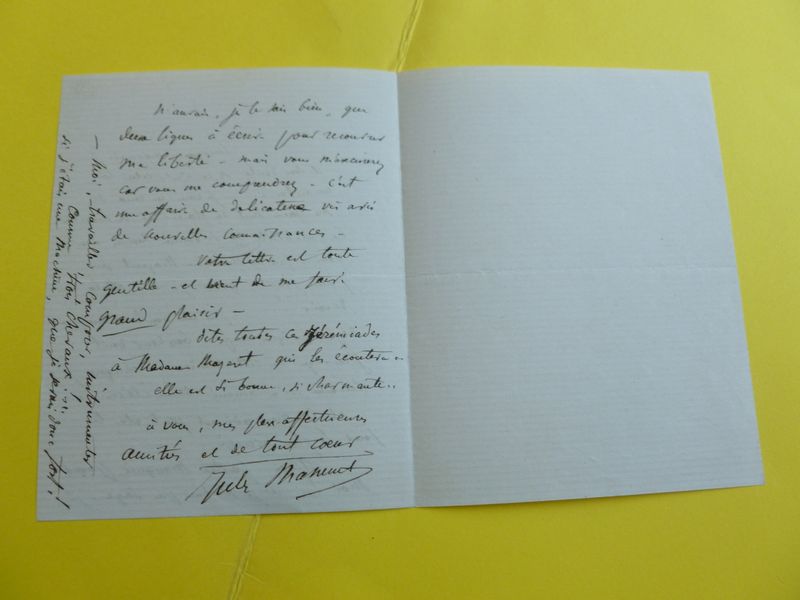 n'aurais, je le sais bien, que
deux lignes à écrire pour recouvrer
ma liberté - mais vous m'excuserez
car vous me comprendrez - c'est
une affaire de délicatesse vis à vis
de nouvelles connaissances -
Votre lettre est toute
gentille - et vient de me faire
grand plaisir -
dites toutes ces jérémiades
à Madame qui les écoutera -
elle est si bonne, si charmante..
à vous, mes plus affectueuses
amitiés et de tout cœur
Jules Massenet
- Moi, travailler, composer, instrumenter
comme trois chevaux!...
si j'étais une machine, que je serais donc fort!